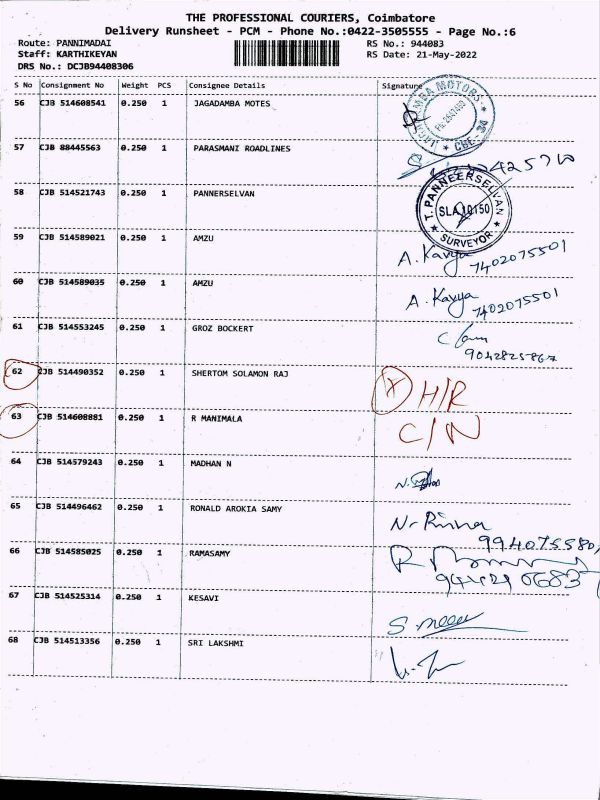 THE PROFESSIONAL COURIERS, Coimbatore
Delivery Runsheet - PCM - Phone No.:0422-3505555 - Page No.:6
Route: PANNIMADAI RS No.: 944083
Staff: KARTHIKEYAN RS Date: 21-May-2022
DRS No.: DCJB94408306
S No Consignment No Weight PCS Consignee Details Signature
56 CJB 514608541 0.250 1 JAGADAMBA MOTES
CBE-34
57 CJB 88445563 0.250 1 PARASMANI ROADLINES
58 CJB 514521743 0.250 1 PANNERSELVAN
T. PANNEERSELVAN
SLA 10150
SURVEYOR
59 CJB 514589021 0.250 1 AMZU
A. Kavya
7402075501
60 CJB 514589035 0.250 1 AMZU
A. Kavya
7402075501
61 CJB 514553245 0.250 1 GROZ BOCKERT
62 CJB 514490352 0.250 1 SHERTOM SOLAMON RAJ
H/R
63 CJB 514608881 0.250 1 R MANIMALA
C/N
64 CJB 514579243 0.250 1 MADHAN N
65 CJB 514496462 0.250 1 RONALD AROKIA SAMY
66 CJB 514585025 0.250 1 RAMASAMY
67 CJB 514525314 0.250 1 KESAVI
68 CJB 514513356 0.250 1 SRI LAKSHMI